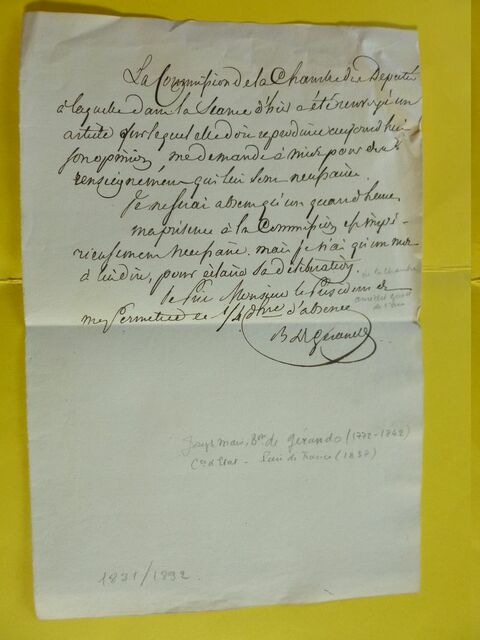 La Commission de la Chambre des Députés
à laquelle dans la séance d'hier a été renvoyé un
article sur lequel elle doit reproduire aujourd'hui
son opinion, me demande à midi pour des
renseignemens qui lui sont nécessaires.
Je ne serai absent qu'un quart d'heure,
ma présence à la Commission est impé-
rieusement nécessaire. mais je n'ai qu'un mot
à lui dire, pour éclairer sa délibération.
Je prie Monsieur le Président de
me permettre ce 1/4 d'hre d'absence
de la chambre
Bn Degérando
Joseph Marie, Bon de Gérando (1772-1842)
Cer d'Etat - Pair de France (1837)
1831/1832.